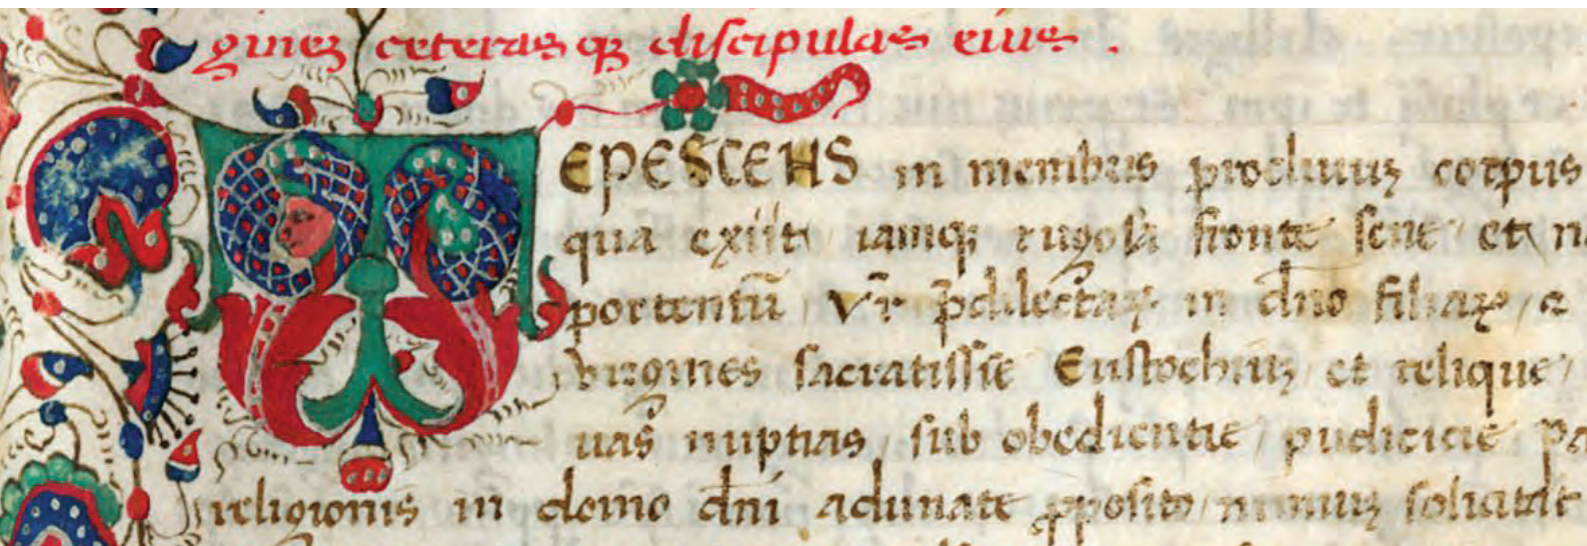 guiez ceteras qꝫ discipulas eius .
TEPESCENS in membris procliuuꝫ corpus
qua exiit iamqꝫ rugosa fronte sene et n
portentū vr̄ p̄dilectaꝝ in dn̄o filiaꝝ / a
uirgines sacratissīe Eustochiuꝫ et relique /
uas nuptias / sub obedientie / pudicicie pa
religionis in domo dn̄i adunate ꝓposito / nimiuꝫ solicitat